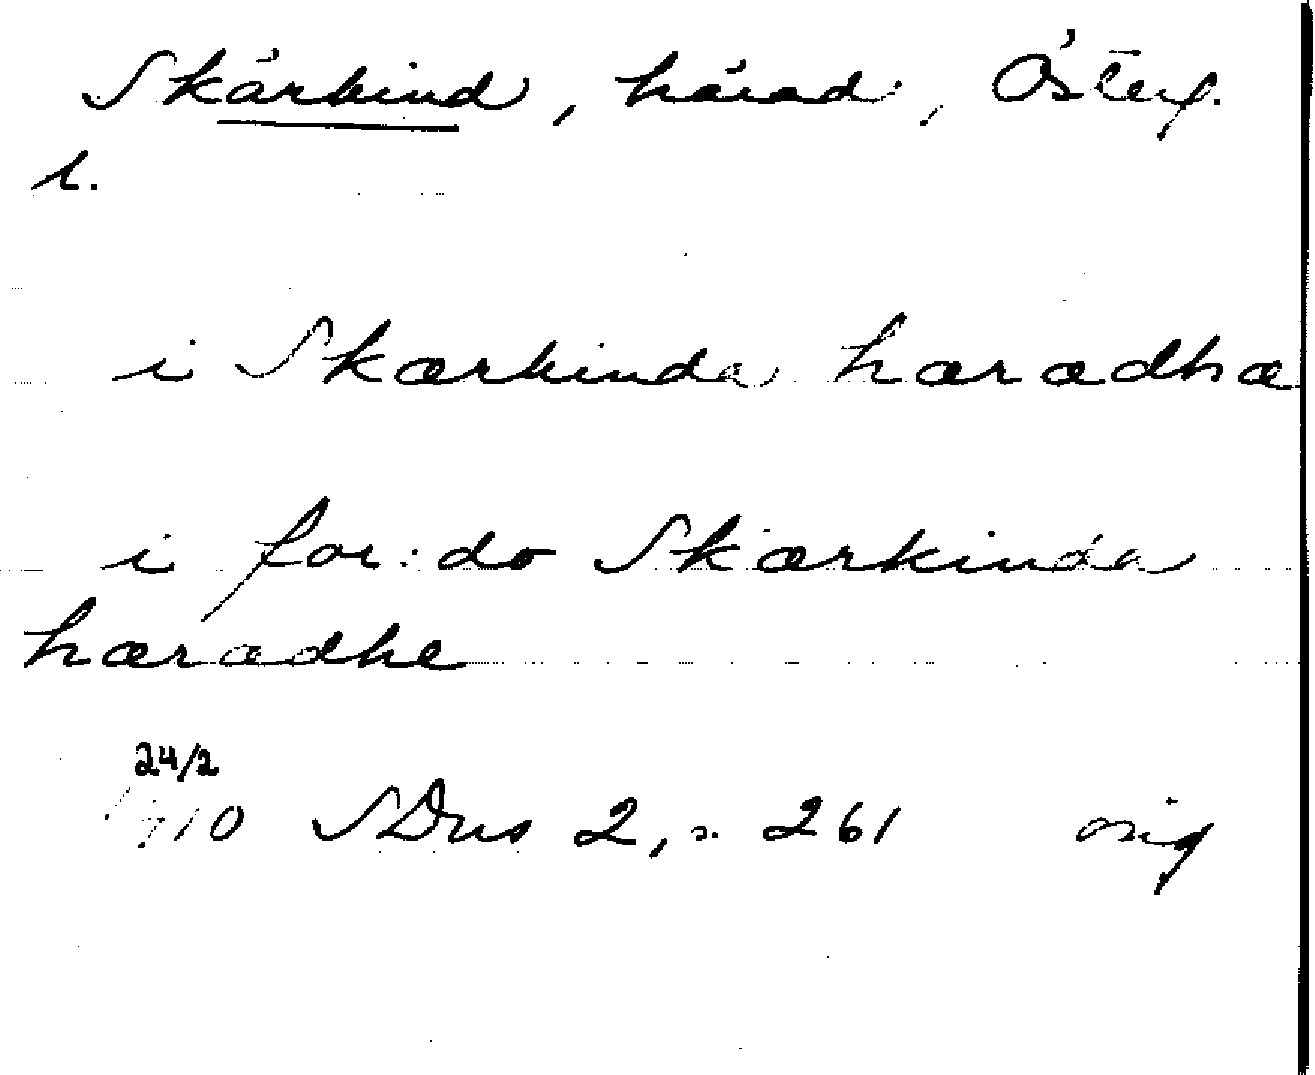 Skärkind, härad, Österg.
l.
i Skærkinda hæradhæ
i for:do Skærkinda
hæradhe
24/2
1410 SDns 2, s. 261 orig